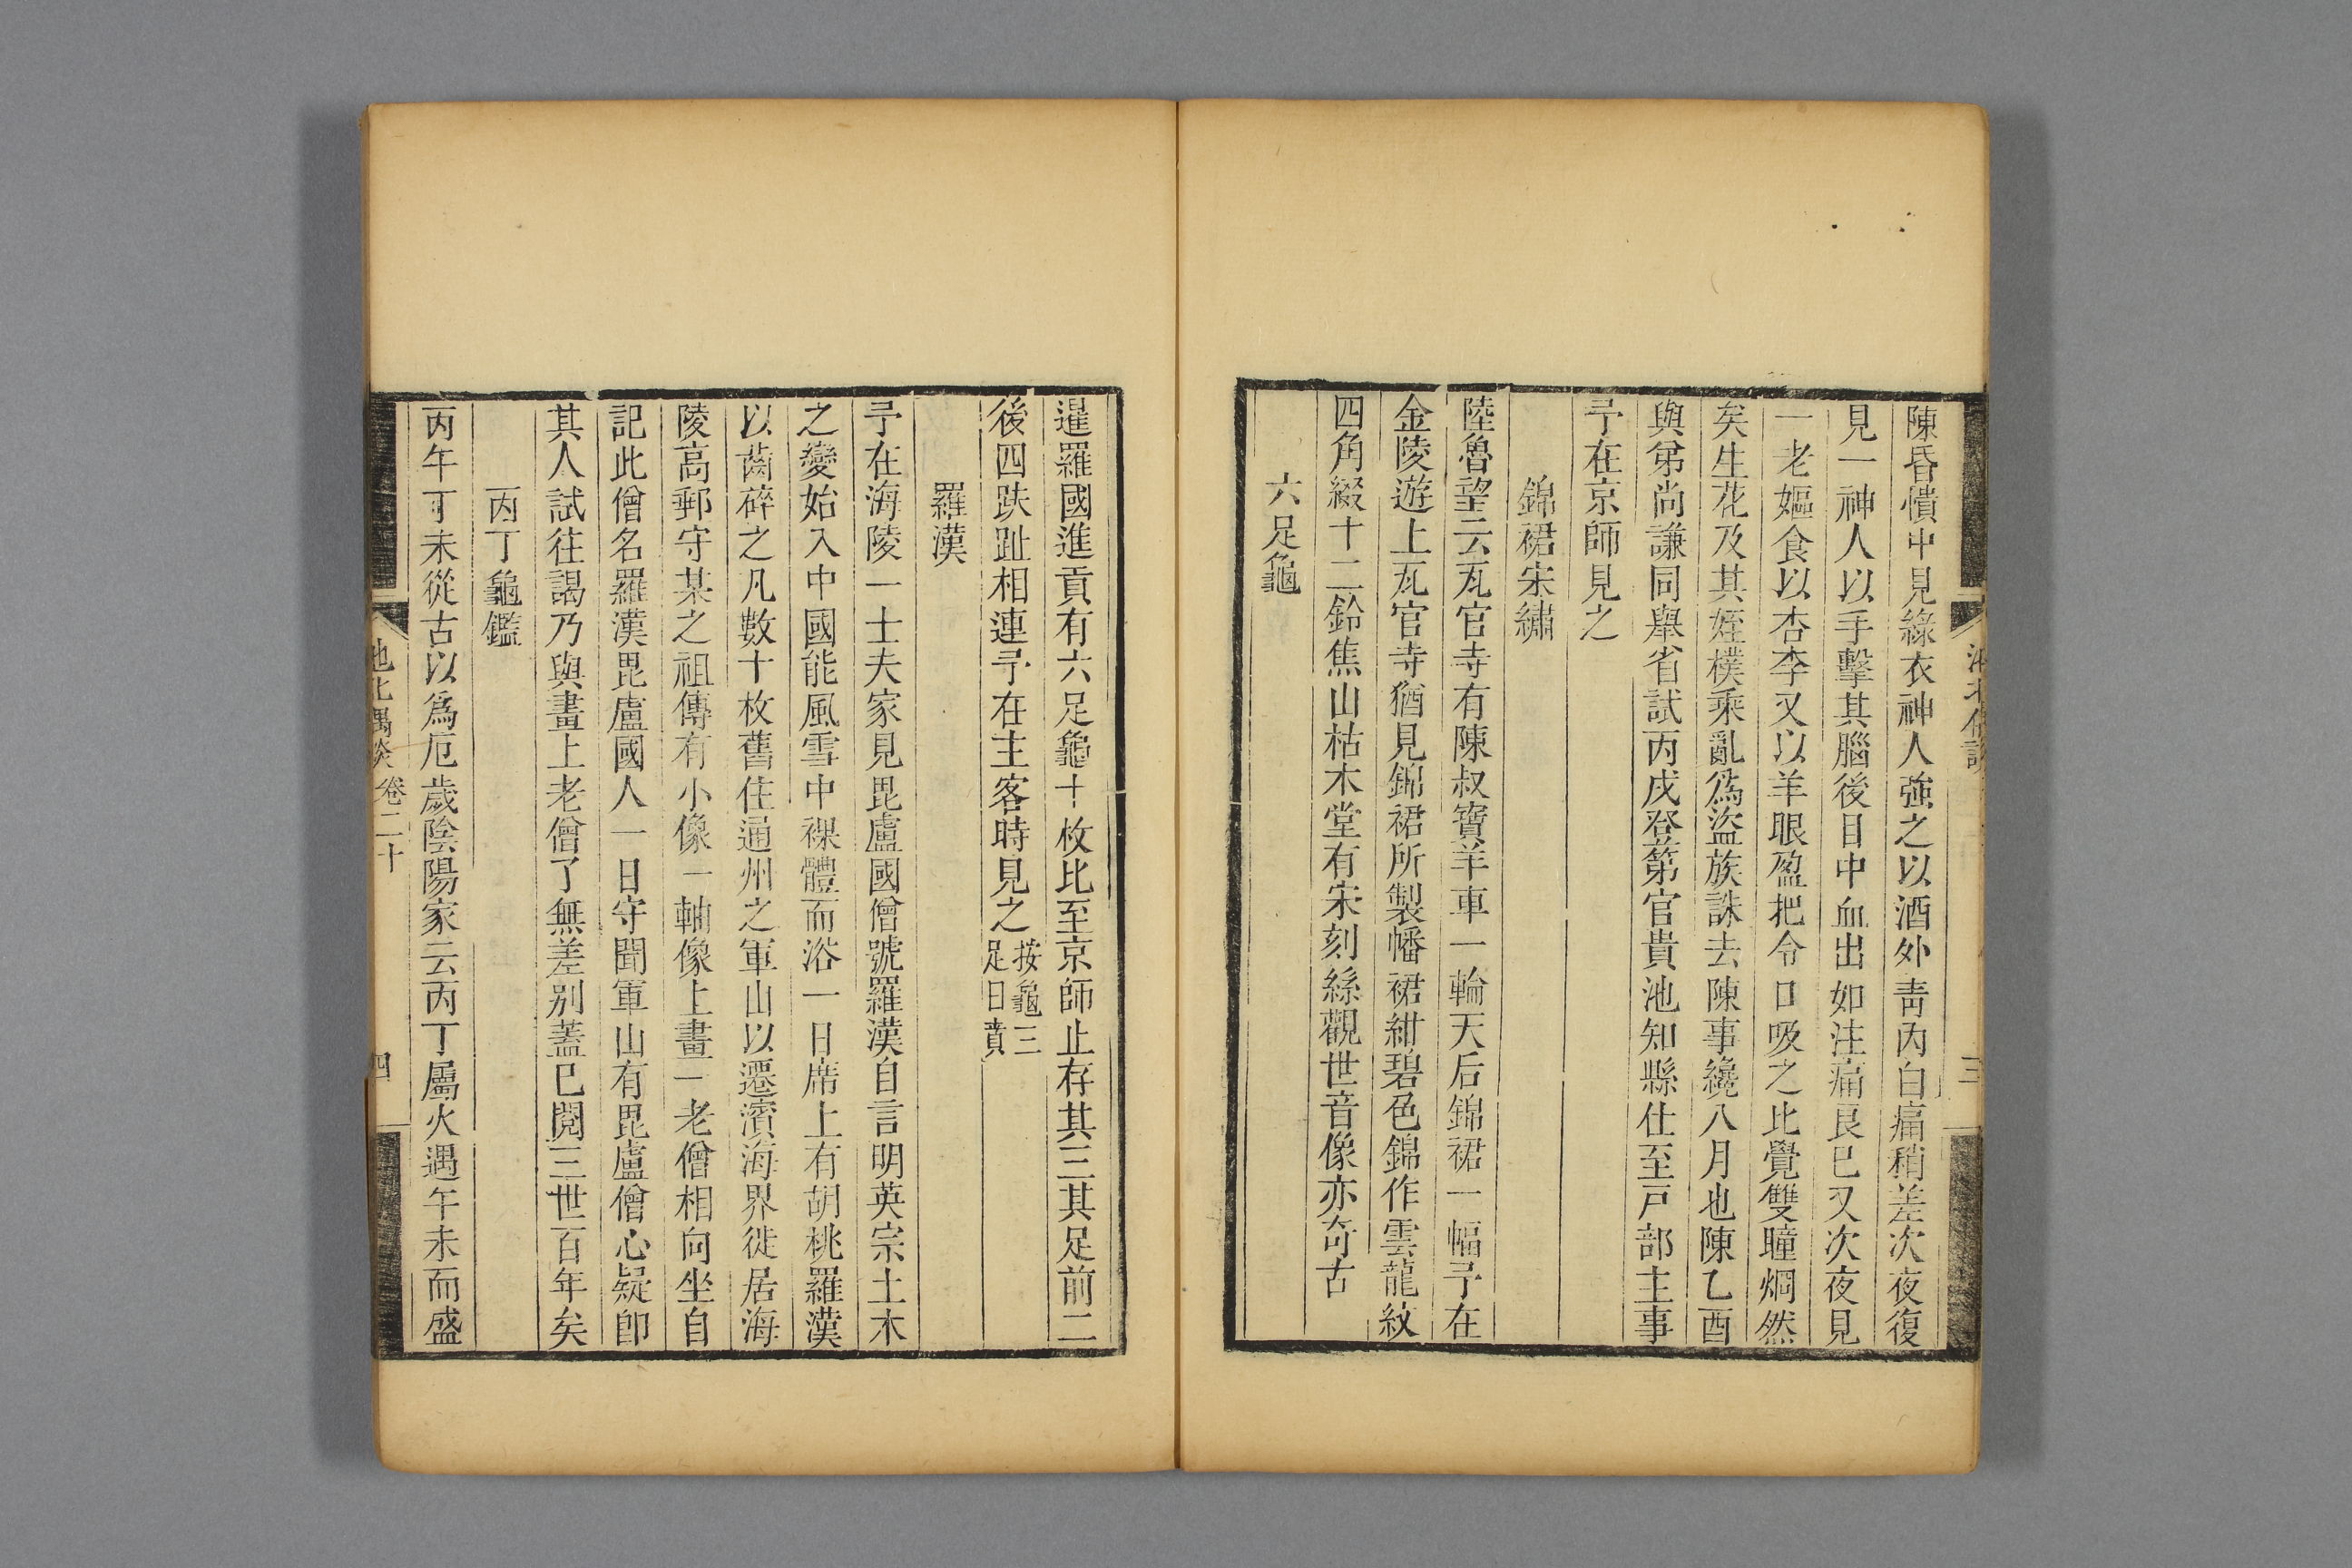 陳昏憒中見綠衣神人強之以酒外靑內白痛稍差次夜復
見一神人以手擊其腦後日中血出如注痛良巳又次夜見
一老嫗食以杏李又以羊眼盈把令口吸之比覺雙瞳烱然
矣生花及其姪樸乘亂爲盜族誅去陳事纔八月也陳乙酉
與弟尚謙同舉省試丙戌登第官貴池知縣仕至戸部主事
予在京師見之
錦裙宋繡
陸魯望云瓦官寺有陳叔寶羊車一輪天后錦裙一幅予在
金陵遊上瓦官寺猶見錦裙所製幡裙紺碧色錦作雲龍紋
四角綴十二鈴焦山枯木堂有宋刻絲觀世音像亦奇古
六足龜
暹羅國進貢有六足龜十枚比至京師止存其三其足前二
後四趺趾相連予在主客時見之按龜三足曰賁
羅漢
予在海陵一士夫家見毘盧國僧號羅漢自言明英宗土木
之變始入中國能風雪中裸體而浴一日席上有胡桃羅漢
以齒碎之凡數十枚舊住通州之軍山以遷濱海界徙居海
陵高郵守某之祖傳有小像一軸像上畫一老僧相向坐自
記此僧名羅漢毘盧國人一日守聞軍山有毘盧僧心疑卽
其人試往謁乃與畫上老僧了無差别蓋巳閱三世百年矣
丙丁龜鑑
丙午丁未從古以爲厄歲陰陽家云丙丁屬火遇午未而盛
池北偶談 卷二十
四
三